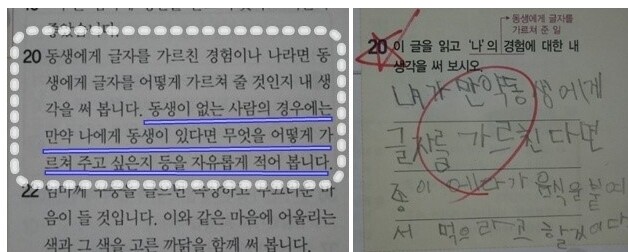 좋았습니다.
20 동생에게 글자를 가르친 경험이나 나라면 동
생에게 글자를 어떻게 가르쳐 줄 것인지 내 생
각을 써 봅니다. 동생이 없는 사람의 경우에는
만약 나에게 동생이 있다면 무엇을 어떻게 가
르쳐 주고 싶은지 등을 자유롭게 적어 봅니다.
22
음이 들 것입니다. 이와 같은 마음에 어울리는
색과 그 색을 고른 까닭을 함께 써 봅니다.
동생에게 글자를
가르쳐 준 일
20 이 글을 읽고 '나'의 경험에 대한 내
생각을 써 보시오.
내가 만약 동생에게
글자를 가르친다면
종이에다가 음식을 붙여
서 먹으라고 할 것이다